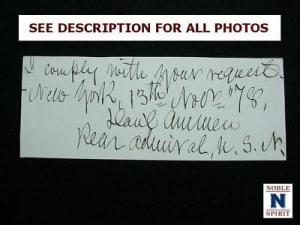 SEE DESCRIPTION FOR ALL PHOTOS
I comply with your request.
New York, 13th Novr '78,
Danl Ammen
Rear admiral, U.S.N.
NOBLE
N
SPIRIT